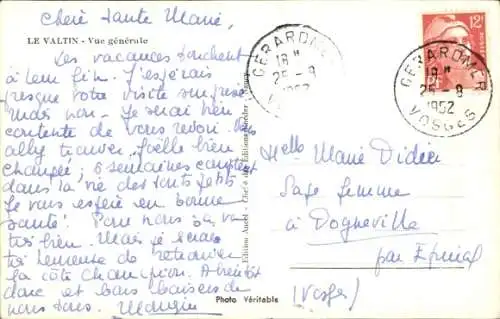 Chère tante Marie,
LE VALTIN - Vue générale
Les vacances touchent
à leur fin. J'espérais
presque votre visite surprise
mais non. Je serai bien
contente de vous revoir. Vous
allez trouver Joëlle bien
changée; 6 semaines comptent
dans la vie des touts petits.
Je vous espère en bonne
santé. Pour nous ça va
très bien. Mais je serai
heureuse de retrouver
la côte Champion. A bientôt
donc et bons baisers de
nous tous.
Photo Véritable
GERARDMER
18 H
25-8
1952
VOSGES
12F
GERARDMER
18 H
25-8
1952
VOSGES
Melle Marie Didier
Sage femme
à Dogneville
par Epinal
(Vosges)